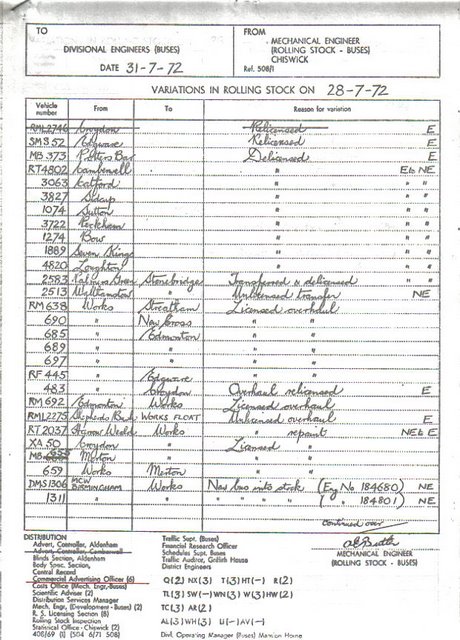 TO
DIVISIONAL ENGINEERS (BUSES)
DATE 31-7-72
FROM
MECHANICAL ENGINEER
(ROLLING STOCK - BUSES)
CHISWICK
Ref. 508/1
VARIATIONS IN ROLLING STOCK ON 28-7-72
Vehicle number From To Reason for variation
RML2746 Croydon Relicensed E
SMS 52 Edgware Relicensed E
MB 373 Potters Bar Delicensed E
RT4802 Camberwell " E to NE
3063 Catford " " "
3827 Sidcup " " "
1074 Sutton " " "
3722 Peckham " " "
1274 Bow " " "
1889 Seven Kings " " "
4820 Loughton " " "
2583 Palmers Green Stonebridge Transferred & delicensed " "
2513 Walthamstow Unlicensed transfer NE
RM 638 Works Streatham Licensed overhaul
690 " New Cross " "
685 " Edmonton " "
689 " " " "
697 " " " "
RF 445 " Edgware " "
483 " Croydon Overhaul relicensed E
RM 692 Edmonton Works Licensed overhaul
RML2275 Shepherds Bush WORKS FLOAT Unlicensed overhaul E
RT 2037 Works " repaint NE to E
XA 50 Croydon " Licensed "
MB 655 Merton " " "
659 Works Merton " "
DMS1306 MCW BIRMINGHAM Works New bus into stock (Eng No 184680) NE
1311 " " " " " " ( " 184801) NE
Continued over
MECHANICAL ENGINEER
(ROLLING STOCK - BUSES)
DISTRIBUTION
Advert. Controller, Aldenham
Advert. Controller, Camberwell
Blinds Section, Aldenham
Body Spec. Section,
Central Record
Commercial Advertising Officer (6)
Costs Office (Mech. Engr.-Buses)
Scientific Adviser (2)
Distribution Services Manager
Mech. Engr. (Development - Buses) (2)
R. S. Licensing Section (8)
Rolling Stock Inspection
Statistical Office - Chiswick (2)
408/69 (I) (504 6/71 508)
Traffic Supt. (Buses)
Financial Research Officer
Schedules Supt. Buses
Traffic Auditor, Griffith House
District Engineers
Q(2) NX(3) T(3) HT(-) R(2)
TL(3) SW(-) WN(3) W(3) HW(2)
TC(3) AR(2)
AL(3) WH(3) U(-) AV(-)
Divl. Operating Manager (Buses) Mansion House